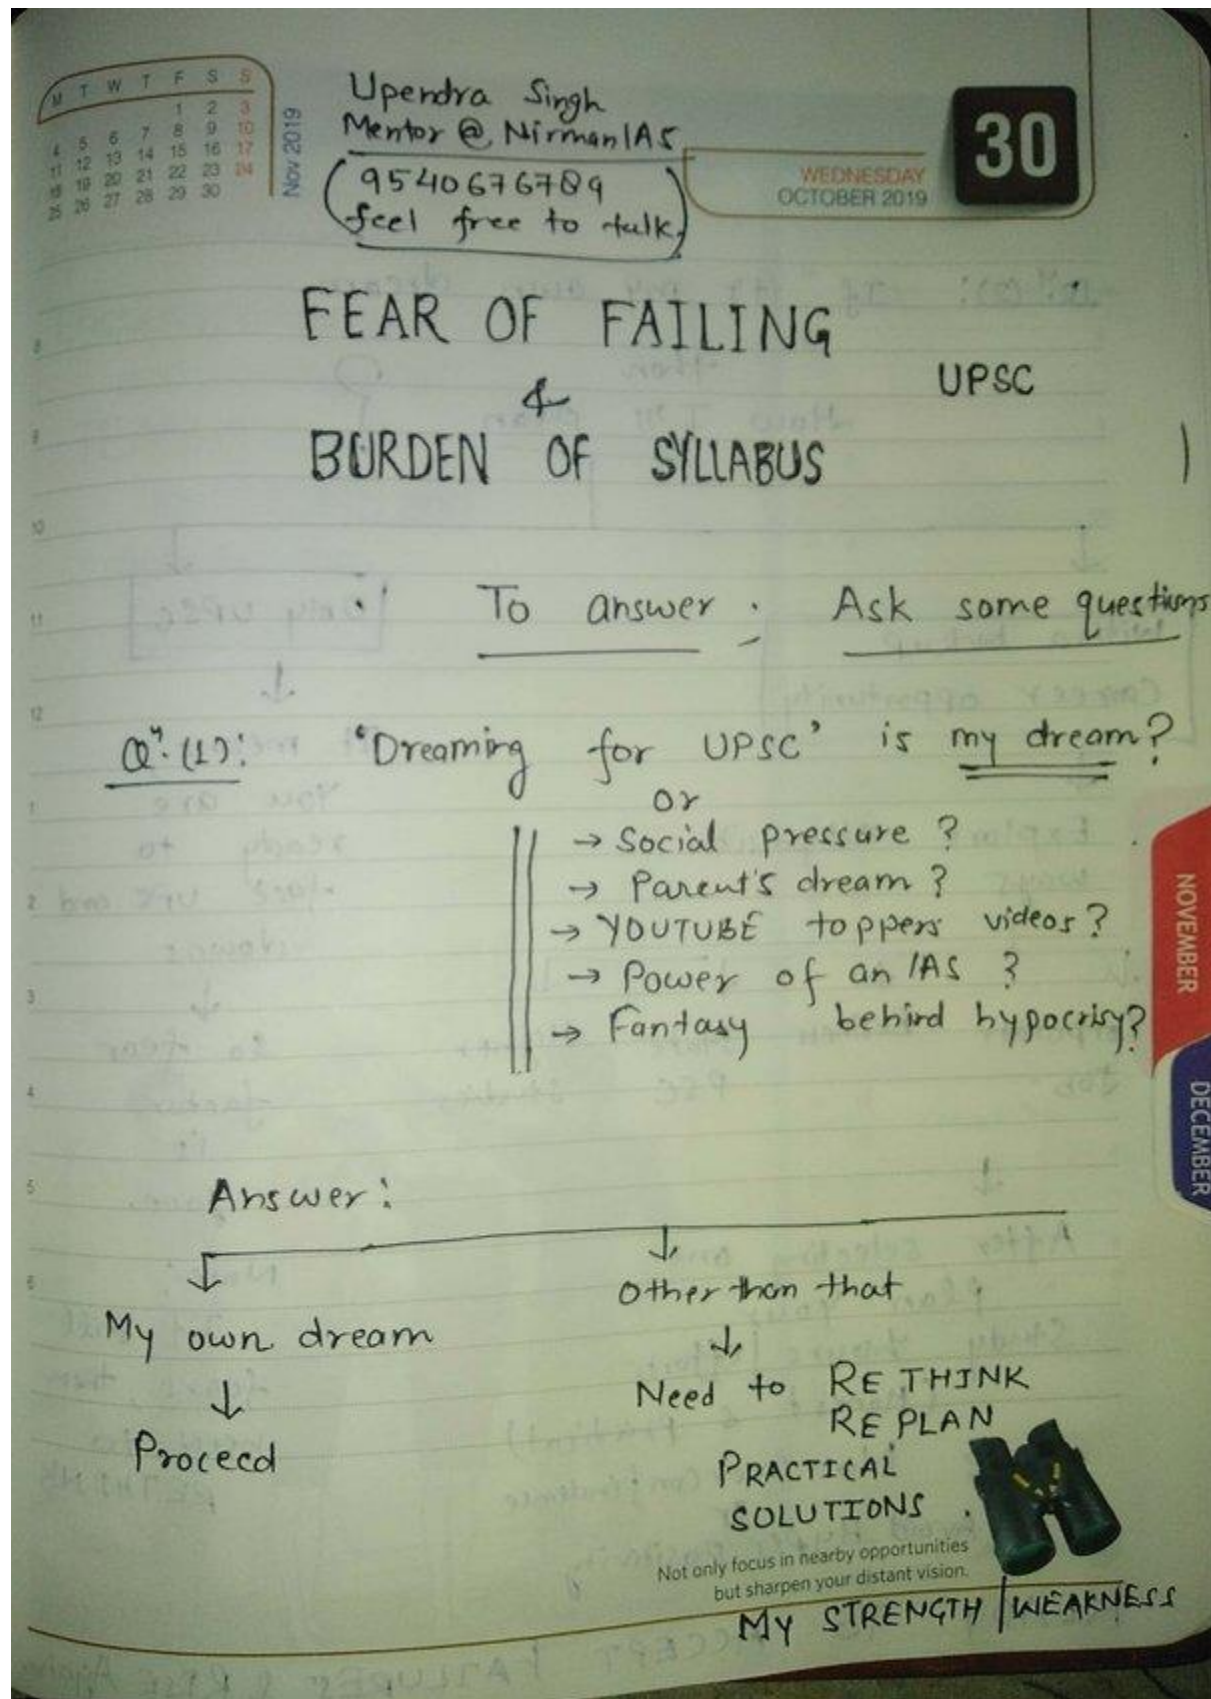 M T W T F S S
1 2 3
4 5 6 7 8 9 10
11 12 13 14 15 16 17
18 19 20 21 22 23 24
25 26 27 28 29 30
Nov 2019
Upendra Singh
Mentor @ NirmanIAS
9540676789
feel free to talk.
WEDNESDAY
OCTOBER 2019
30
FEAR OF FAILING
&
UPSC
BURDEN OF SYLLABUS
To answer : Ask some questions
Qn. (1): 'Dreaming for UPSC' is my dream?
or
→ Social pressure ?
→ Parent's dream ?
→ YOUTUBE toppers videos ?
→ Power of an IAS ?
→ Fantasy behind hypocrisy?
Answer :
↓ ↓
My own dream Other than that
↓ ↓
Proceed Need to RETHINK
REPLAN
PRACTICAL
SOLUTIONS .
Not only focus in nearby opportunities
but sharpen your distant vision.
MY STRENGTH / WEAKNESS
8
9
10
11
12
1
2
3
4
5
6
NOVEMBER
DECEMBER